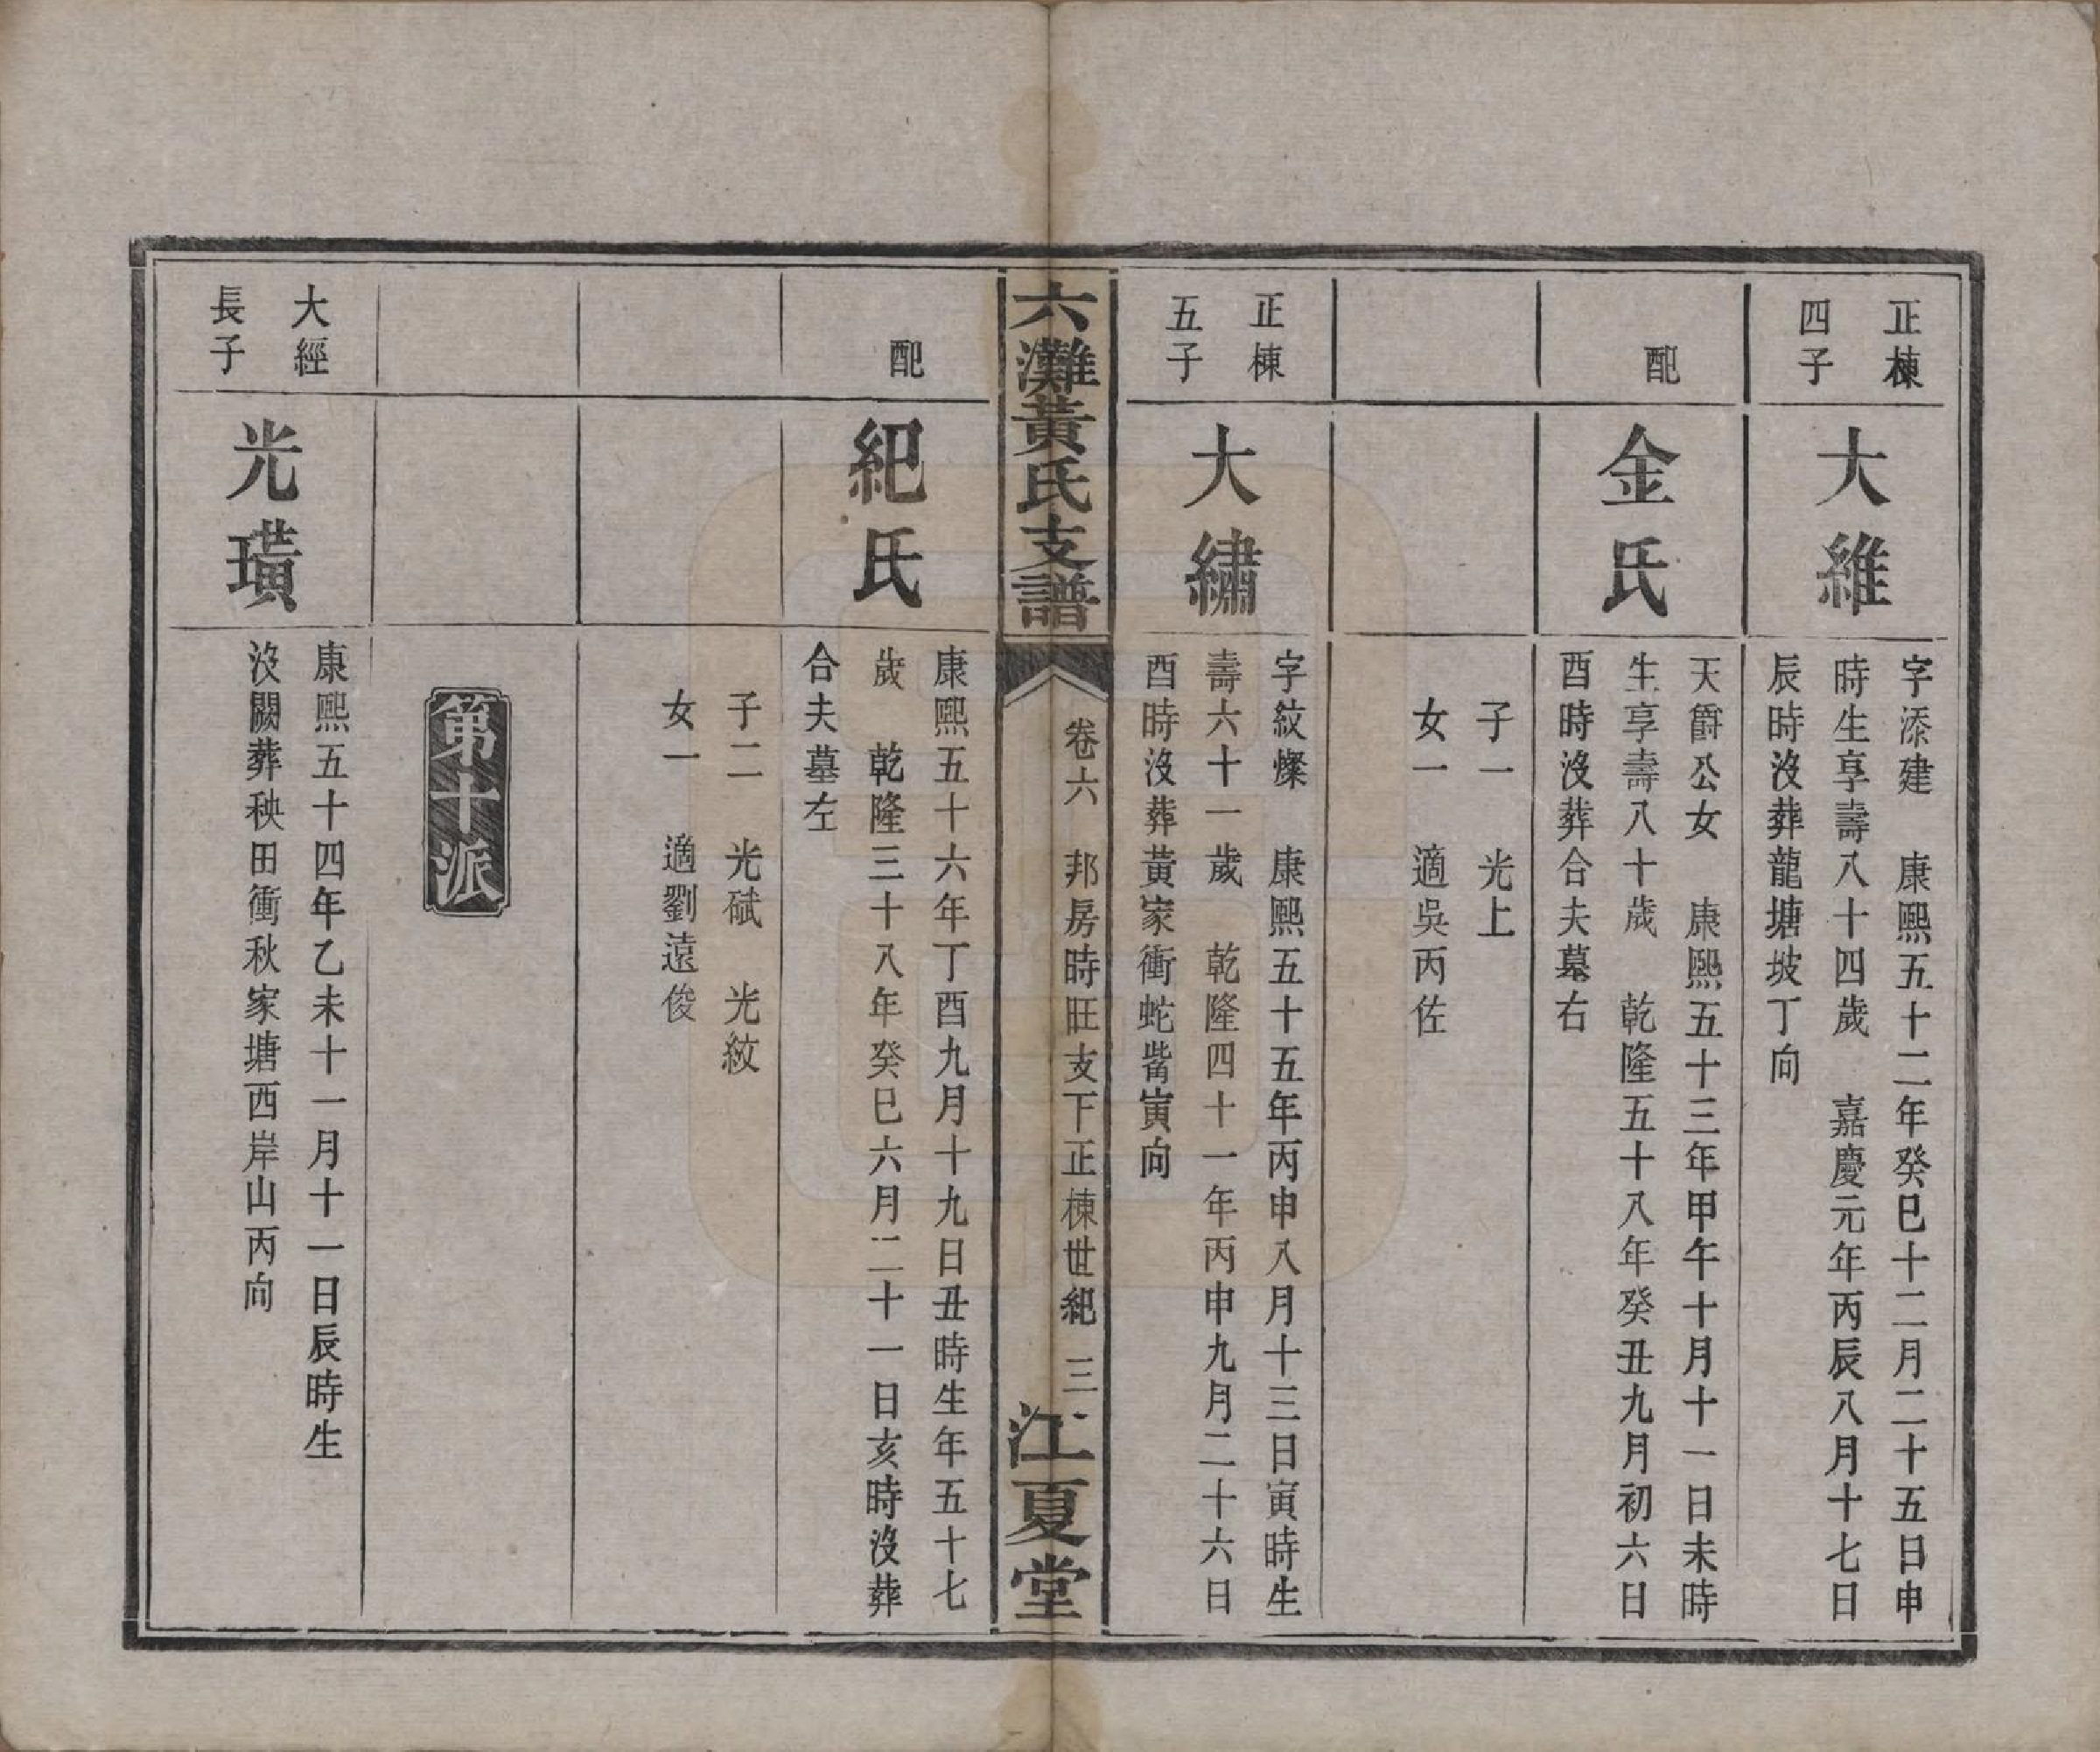 正棟
四子
大維
字添建　康熙五十二年癸巳十二月二十五日申
時生享壽八十四歲　嘉慶元年丙辰八月十七日
辰時沒葬龍塘坡丁向
配
金氏
天爵公女　康熙五十三年甲午十月十一日未時
生享壽八十歲　乾隆五十八年癸丑九月初六日
酉時沒葬合夫墓右
子一　光上
女一　適吳丙佐
正棟
五子
大繡
字紋燦　康熙五十五年丙申八月十三日寅時生
壽六十一歲　乾隆四十一年丙申九月二十六日
酉時沒葬黃家衝蛇嘴寅向
六灘黃氏支譜
卷六　邦房時旺支下正棟世紀　三
江夏堂
配
紀氏
康熙五十六年丁酉九月十九日丑時生年五十七
歲　乾隆三十八年癸巳六月二十一日亥時沒葬
合夫墓左
子二　光斌　光紋
女一　適劉遠俊
第十派
大經
長子
光璜
康熙五十四年乙未十一月十一日辰時生
沒闕葬秧田衝秋家塘西岸山丙向